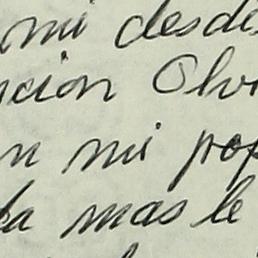 mi desde
ncion Olv
n mi pop
da mas le